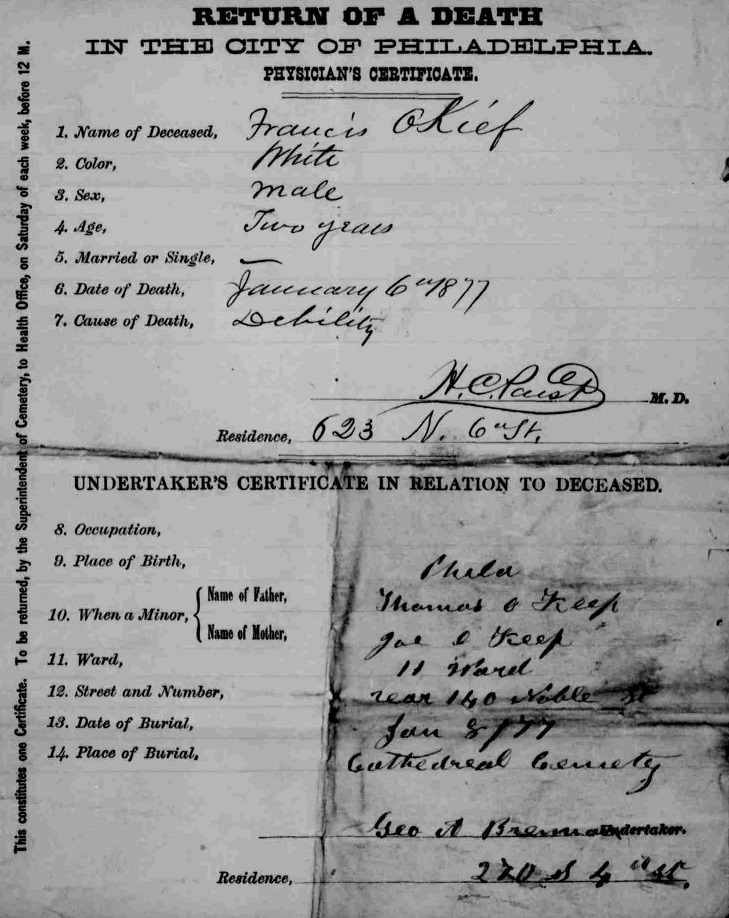 RETURN OF A DEATH
IN THE CITY OF PHILADELPHIA.
PHYSICIAN'S CERTIFICATE.
1. Name of Deceased, Francis OKief
2. Color, White
3. Sex, Male
4. Age, Two years
5. Married or Single, —
6. Date of Death, January 6th 1877
7. Cause of Death, Debility
H. C. Paist M. D.
Residence, 623 N. 6th St.
UNDERTAKER'S CERTIFICATE IN RELATION TO DECEASED.
8. Occupation,
9. Place of Birth, Phila
10. When a Minor, { Name of Father, Thomas O Keep
Name of Mother, O Keep
11. Ward, 11 Ward
12. Street and Number, rear 140 Noble St
13. Date of Burial, Jan 8/77
14. Place of Burial, Cathedreal Cemety
Geo A Brennan Undertaker.
Residence, S 4th St.
This constitutes one Certificate. To be returned, by the Superintendent of Cemetery, to Health Office, on Saturday of each week, before 12 M.